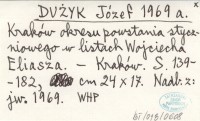 DUŻYK Józef 1969 a.
Kraków okresu powstania stycz-
niowego w listach Wojciecha
Eliasza. - Kraków. S. 139-
-182, cm 24 x 17. Nadb. z:
jw. 1969. WHP
bi/018/0608